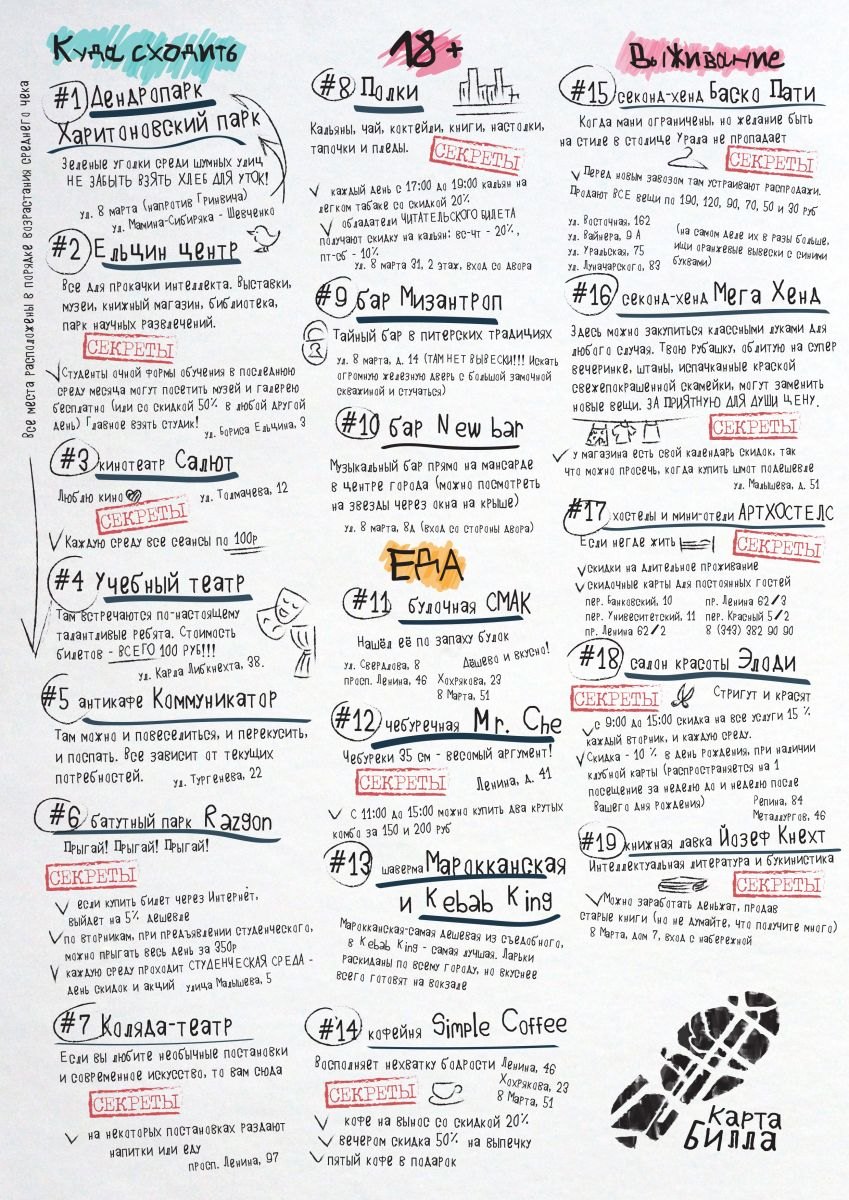 Куда сходить
Все места расположены в порядке возрастания среднего чека
#1 Дендропарк
Харитоновский парк
Зеленые уголки среди шумных улиц
НЕ ЗАБЫТЬ ВЗЯТЬ ХЛЕБ ДЛЯ УТОК!
ул. 8 марта (напротив Гринвича)
ул. Мамина-Сибиряка - Шевченко
#2 Ельцин центр
Все для прокачки интеллекта. Выставки,
музеи, книжный магазин, библиотека,
парк научных развлечений.
СЕКРЕТЫ
Студенты очной формы обучения в последнюю
среду месяца могут посетить музей и галерею
бесплатно (или со скидкой 50% в любой другой
день) Главное взять студик!
ул. Бориса Ельцина, 3
#3 кинотеатр Салют
Люблю кино
ул. Толмачева, 12
СЕКРЕТЫ
Каждую среду все сеансы по 100р
#4 Учебный театр
Там встречаются по-настоящему
талантливые ребята. Стоимость
билетов - ВСЕГО 100 РУБ!!!
ул. Карла Либкнехта, 38.
#5 антикафе Коммуникатор
Там можно и повеселиться, и перекусить,
и поспать. Все зависит от текущих
потребностей.
ул. Тургенева, 22
#6 батутный парк Razgon
Прыгай! Прыгай! Прыгай!
СЕКРЕТЫ
если купить билет через Интернет,
выйдет на 5% дешевле
по вторникам, при предъявлении студенческого,
можно прыгать весь день за 350р
каждую среду проходит СТУДЕНЧЕСКАЯ СРЕДА -
день скидок и акций улица Малышева, 5
#7 Коляда-театр
Если вы любите необычные постановки
и современное искусство, то вам сюда
СЕКРЕТЫ
на некоторых постановках раздают
напитки или еду
просп. Ленина, 97
18+
#8 Полки
Кальяны, чай, коктейли, книги, настолки,
тапочки и пледы.
СЕКРЕТЫ
каждый день с 17:00 до 19:00 кальян на
легком табаке со скидкой 20%
обладатели ЧИТАТЕЛЬСКОГО БИЛЕТА
получают скидку на кальян: вс-чт - 20%,
пт-сб - 10%
ул. 8 марта 31, 2 этаж, вход со двора
#9 бар Мизантроп
Тайный бар в питерских традициях
ул. 8 марта, д. 14 (ТАМ НЕТ ВЫВЕСКИ!!! Искать
огромную железную дверь с большой замочной
скважиной и стучаться)
#10 бар New bar
Музыкальный бар прямо на мансарде
в центре города (можно посмотреть
на звезды через окна на крыше)
ул. 8 марта, 8д (вход со стороны двора)
ЕДА
#11 булочная СМАК
Нашёл её по запаху булок
ул. Свердлова, 8
Дёшево и вкусно!
просп. Ленина, 46 Хохрякова, 23
8 Марта, 51
#12 чебуречная Mr. Che
Чебуреки 35 см - весомый аргумент!
СЕКРЕТЫ
Ленина, д. 41
С 11:00 до 15:00 можно купить два крутых
комбо за 150 и 200 руб
#13 шаверма Марокканская
и Kebab King
Марокканская-самая дешевая из съедобного,
в Kebab King - самая лучшая. Ларьки
раскиданы по всему городу, но вкуснее
всего готовят на вокзале
#14 кофейня Simple Coffee
Восполняет нехватку бодрости Ленина, 46
Хохрякова, 23
8 Марта, 51
СЕКРЕТЫ
кофе на вынос со скидкой 20%
вечером скидка 50% на выпечку
пятый кофе в подарок
Выживание
#15 секонд-хенд Баско Пати
Когда мани ограничены, но желание быть
на стиле в столице Урала не пропадает
СЕКРЕТЫ
Перед новым завозом там устраивают распродажи.
Продают ВСЕ вещи по 190, 120, 90, 70, 50 и 30 руб
ул. Восточная, 162
ул. Вайнера, 9 А
ул. Уральская, 75
ул. Луначарского, 83
(на самом деле их в разы больше,
ищи оранжевые вывески с синими
буквами)
#16 секонд-хенд Мега Хенд
Здесь можно закупиться классными луками для
любого случая. Твою рубашку, облитую на супер
вечеринке, штаны, испачканные краской
свежепокрашенной скамейки, могут заменить
новые вещи. ЗА ПРИЯТНУЮ ДЛЯ ДУШИ ЦЕНУ.
СЕКРЕТЫ
у магазина есть свой календарь скидок, так
что можно просечь, когда купить шмот подешевле
ул. Малышева, д. 51
#17 хостелы и мини-отели АРТХОСТЕЛС
Если негде жить
СЕКРЕТЫ
скидки на длительное проживание
скидочные карты для постоянных гостей
пер. Банковский, 10 пр. Ленина 62/3
пер. Унивеситетский, 11 пер. Красный 5/2
пр. Ленина 62/2 8 (343) 382 90 90
#18 салон красоты Элоди
СЕКРЕТЫ
Стригут и красят
с 9:00 до 15:00 скидка на все услуги 15 %
каждый вторник, и каждую среду.
Скидка - 10 % в день рождения, при наличии
клубной карты (распространяется на 1
посещение за неделю до и неделю после
Вашего дня рождения)
Репина, 84
Металлургов, 46
#19 книжная лавка Йозеф Кнехт
Интеллектуальная литература и букинистика
СЕКРЕТЫ
Можно заработать деньжат, продав
старые книги (но не думайте, что получите много)
8 Марта, дом 7, вход с набережной
карта
БИЛЛА